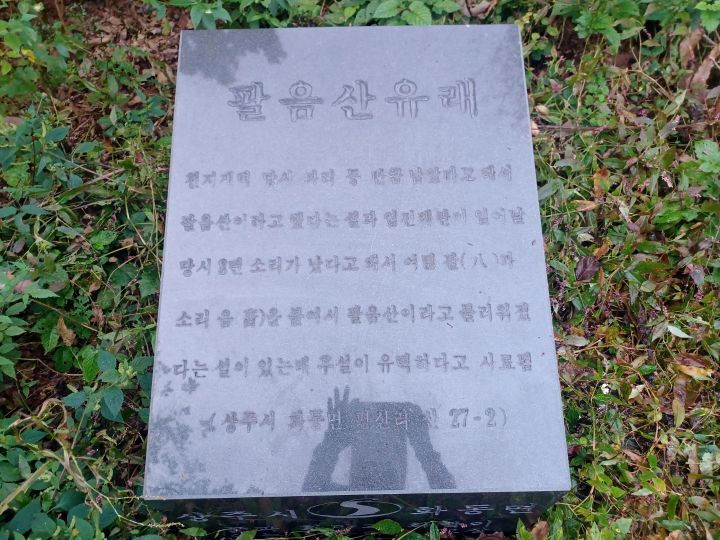 팔음산유래
천지개벽 당시 파리 등 만큼 남았다고 해서
팔음산이라고 했다는 설과 임진왜란이 일어날
당시 8번 소리가 났다고 해서 여덟 팔(八)과
소리 음 音)을 붙여서 팔음산이라고 불리워졌
다는 설이 있는데 후설이 유력하다고 사료됨
(상주시 화동면 평산리 산 27-2)
상주시 화동면